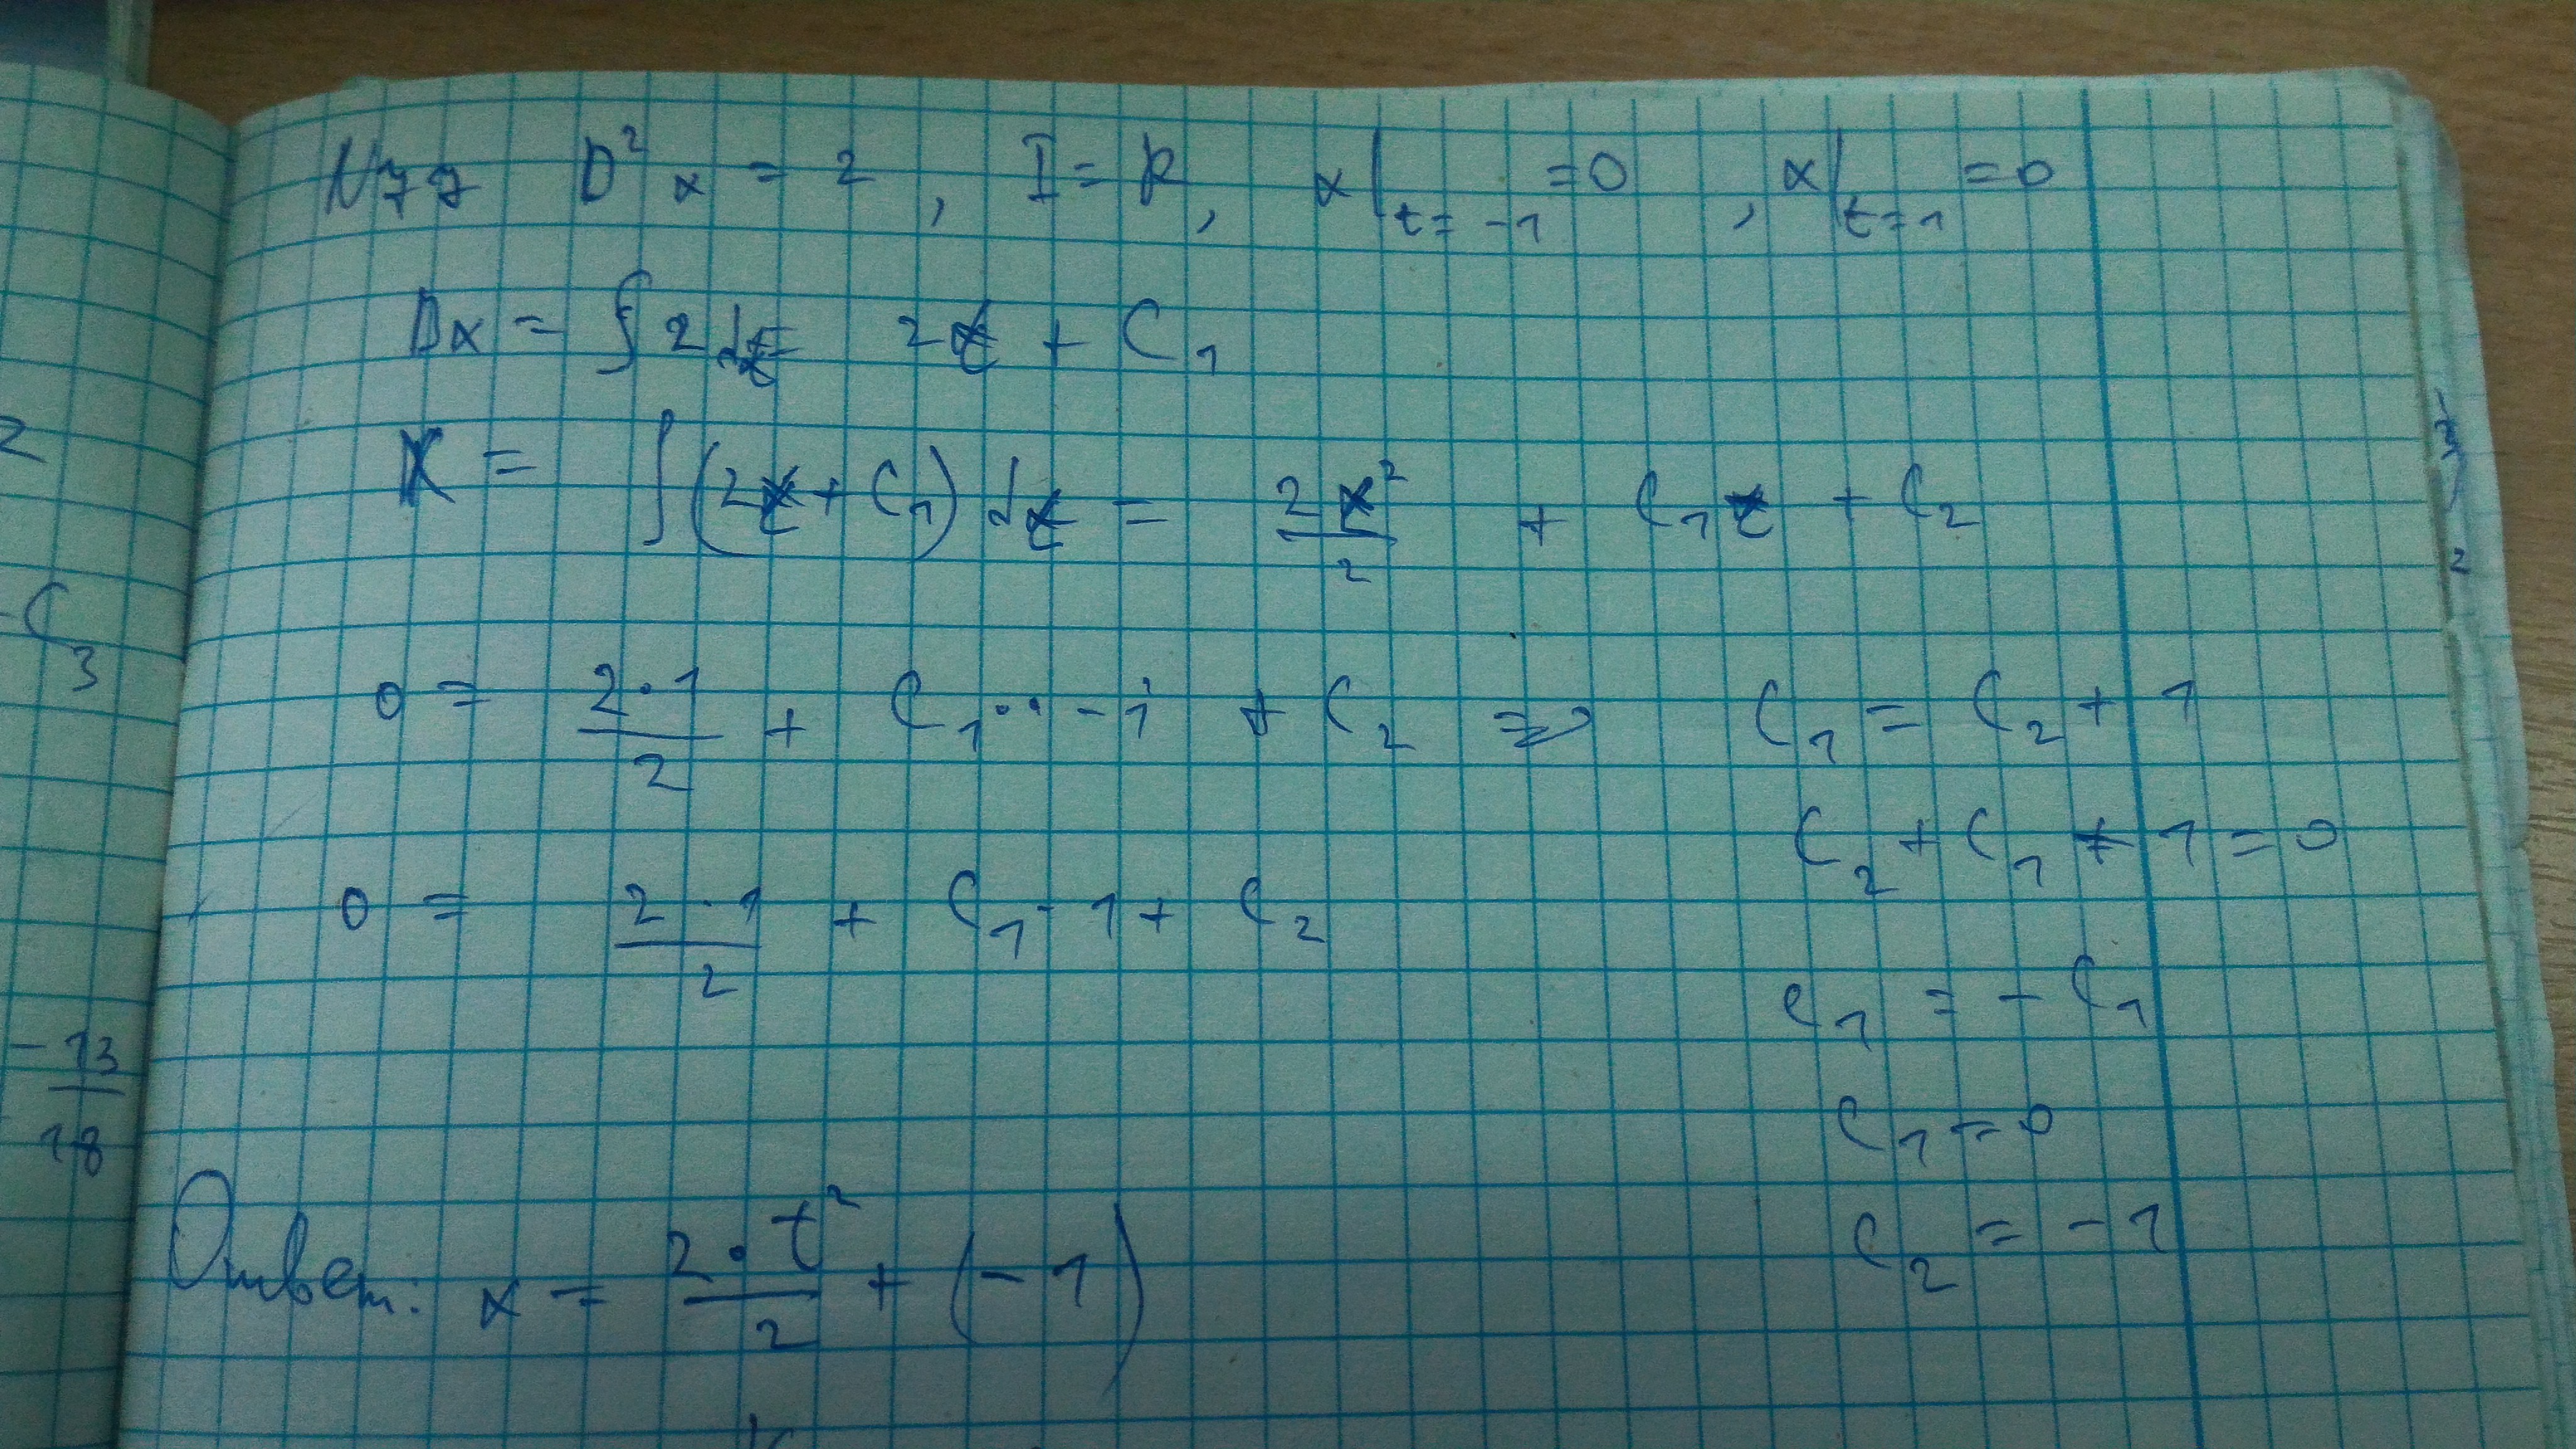 N77 D² x = 2 , I = R, x|t=-1 =0 , x|t=1 =0
Dx = ∫ 2 dt = 2t + C₁
X = ∫ (2t + C₁) dt = 2t²/2 + C₁t + C₂
0 = 2·1/2 + C₁·-1 + C₂ => C₁ = C₂ + 1
C₂ + C₁ + 1 = 0
0 = 2·1/2 + C₁·1 + C₂
C₁ = -C₁
C₁ = 0
C₂ = -1
Ответ: x = 2·t²/2 + (-1)
2
-C₃
-13/18